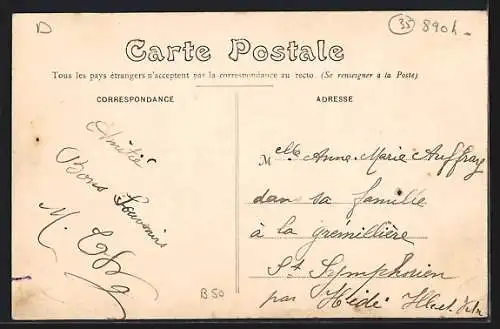 D
35
890h
Carte Postale
Tous les pays étrangers n'acceptent par la correspondance au recto. (Se renseigner à la Poste)
CORRESPONDANCE
ADRESSE
Amitié
Bons Souvenirs
M.
Melle Anne-Marie Auffray
dans sa famille
à la grémillière
St Symphorien
par Hédé Ille et Vil
B50